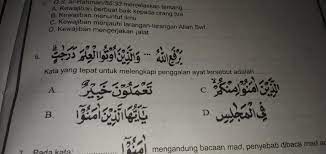 Q.S. ar-Rahman/55:33 menjelaskan tentang
A. Kewajiban berbuat baik kepada orang tua
B. Kewajiban menuntut ilmu
C. Kewajiban menjauhi larangan-larangan Allah Swt.
D. Kewajiban mengerjakan salat
6. يَرْفَعِ اللهُ ... وَالَّذِيْنَ اُوتُوا الْعِلْمَ دَرَجٰتٍ
Kata yang tepat untuk melengkapi penggalan ayat tersebut adalah
A. تَعْمَلُوْنَ خَبِيْرٌ C. الَّذِيْنَ اٰمَنُوْا مِنْكُمْ
B. يٰٓاَيُّهَا الَّذِيْنَ اٰمَنُوْا D. فِى الْمَجٰلِسِ
7. Pada kata: اٰمَنُوْا mengandung bacaan mad, penyebab dibaca mad